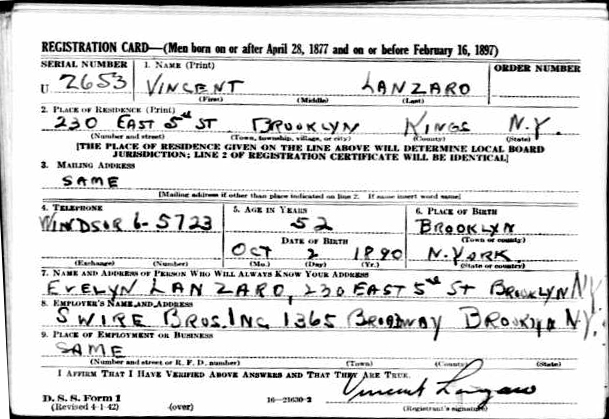 REGISTRATION CARD—(Men born on or after April 28, 1877 and on or before February 16, 1897)
SERIAL NUMBER 1. NAME (Print) ORDER NUMBER
U 2653 VINCENT LANZARO
(First) (Middle) (Last)
2. PLACE OF RESIDENCE (Print)
230 EAST 5th ST BROOKLYN KINGS N.Y.
(Number and street) (Town, township, village, or city) (County) (State)
[THE PLACE OF RESIDENCE GIVEN ON THE LINE ABOVE WILL DETERMINE LOCAL BOARD
JURISDICTION; LINE 2 OF REGISTRATION CERTIFICATE WILL BE IDENTICAL]
3. MAILING ADDRESS
SAME
[Mailing address if other than place indicated on line 2. If same insert word same]
4. TELEPHONE 5. AGE IN YEARS 6. PLACE OF BIRTH
WINDSOR 6-5723 52 BROOKLYN
DATE OF BIRTH (Town or county)
OCT 2 1890 N.YORK.
(Exchange) (Number) (Mo.) (Day) (Yr.) (State or country)
7. NAME AND ADDRESS OF PERSON WHO WILL ALWAYS KNOW YOUR ADDRESS
EVELYN LANZARO, 230 EAST 5th ST BROOKLYN N.Y.
8. EMPLOYER'S NAME AND ADDRESS
SWIRE BROS. INC 1365 BROADWAY BROOKLYN N.Y.
9. PLACE OF EMPLOYMENT OR BUSINESS
SAME
(Number and street or R. F. D. number) (Town) (County) (State)
I AFFIRM THAT I HAVE VERIFIED ABOVE ANSWERS AND THAT THEY ARE TRUE.
D. S. S. Form 1 Vincent Lanzaro
(Revised 4-1-42) (over) 16—21630-2 (Registrant's signature)